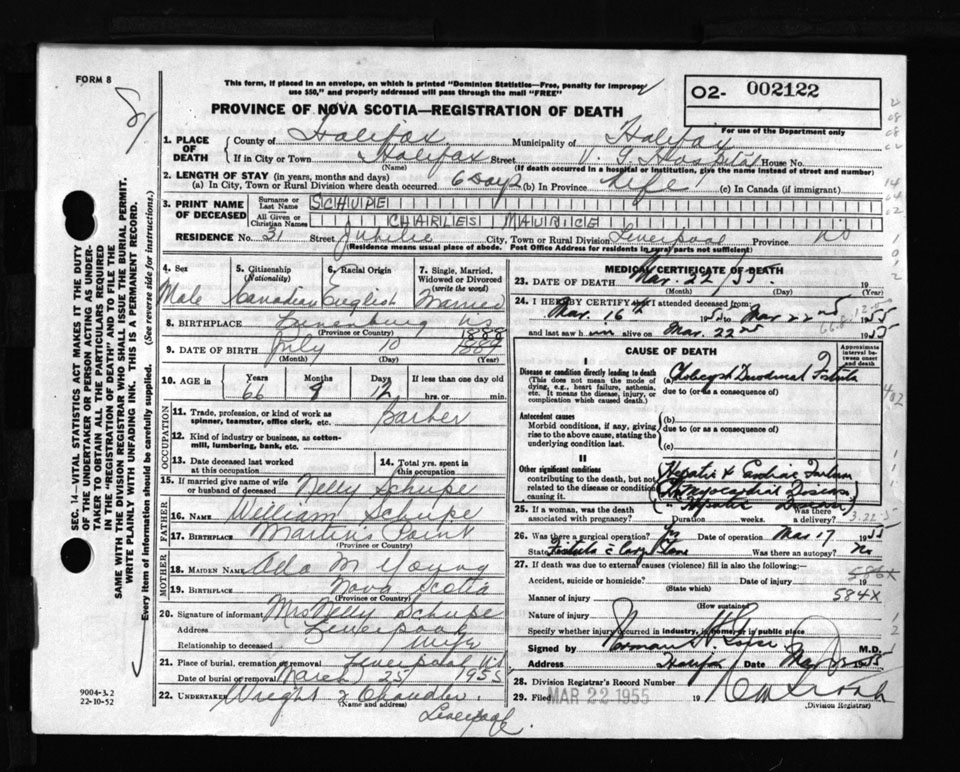 FORM 8
This form, if placed in an envelope, on which is printed "Dominion Statistics—Free, penalty for improper
use $50," and properly addressed will pass through the mail "FREE"
02- 002122
For use of the Department only
PROVINCE OF NOVA SCOTIA—REGISTRATION OF DEATH
1. PLACE OF DEATH
County of Halifax Municipality of Halifax
If in City or Town Halifax Street V. G. Hospital House No.
(Name) (If death occurred in a hospital or institution, give the name instead of street and number)
2. LENGTH OF STAY (in years, months and days)
(a) In City, Town or Rural Division where death occurred 6 Days (b) In Province Life (c) In Canada (if immigrant)
3. PRINT NAME OF DECEASED
Surname or Last Name SCHUPE
All Given or Christian Names CHARLES MAURICE
RESIDENCE No. 31 Street Jubilee City, Town or Rural Division Liverpool Province NS
(Residence means usual place of abode. Post Office Address for residents in rural parts not sufficient)
4. Sex Male
5. Citizenship (Nationality) Canadian
6. Racial Origin English
7. Single, Married, Widowed or Divorced (write the word) Married
8. BIRTHPLACE Lunenburg NS
(Province or Country)
9. DATE OF BIRTH July 10 1888
(Month) (Day) (Year)
10. AGE in Years Months Days If less than one day old
66 12 hrs. or min.
OCCUPATION
11. Trade, profession, or kind of work as spinner, teamster, office clerk, etc. Barber
12. Kind of industry or business, as cotton-mill, lumbering, bank, etc.
13. Date deceased last worked at this occupation
14. Total yrs. spent in this occupation
15. If married give name of wife or husband of deceased Nelly Schupe
FATHER
16. NAME William Schupe
17. BIRTHPLACE Martin's Point
(Province or Country)
MOTHER
18. MAIDEN NAME Ada M Young
19. BIRTHPLACE Nova Scotia
(Province or Country)
20. Signature of informant Mrs Nelly Schupe
Address Liverpool
Relationship to deceased Wife
21. Place of burial, cremation or removal Liverpool NS
Date of burial or removal March 25 1955
22. UNDERTAKER Wright & Chandler
(Name and address)
Liverpool
MEDICAL CERTIFICATE OF DEATH
23. DATE OF DEATH Mar. 22/55 19
(Month) (Day) (Year)
24. I HEREBY CERTIFY that I attended deceased from:
Mar. 16th 1955 to Mar 22nd 1955
and last saw him alive on Mar. 22nd 1955
CAUSE OF DEATH
Approximate interval between onset and death
I
Disease or condition directly leading to death
(This does not mean the mode of dying, e.g., heart failure, asthenia, etc. It means the disease, injury, or complication which caused death.)
(a) Fistula
due to (or as a consequence of)
Antecedent causes
Morbid conditions, if any, giving rise to the above cause, stating the underlying condition last.
(b)
due to (or as a consequence of)
(c)
II
Other significant conditions
contributing to the death, but not related to the disease or condition causing it.
Hepatic &
25. If a woman, was the death associated with pregnancy? Duration weeks. Was there a delivery?
26. Was there a surgical operation? Date of operation Mar 17 1955
State Fistula Was there an autopsy? No
27. If death was due to external causes (violence) fill in also the following:—
586X
Accident, suicide or homicide? Date of injury 19
(State which)
584X
Manner of injury
(How sustained)
Nature of injury
Specify whether injury occurred in industry, in home, or in public place
Signed by Norman H. M.D.
Address Halifax Date
28. Division Registrar's Record Number
29. Filed MAR 22 1955 19
(Division Registrar)
SEC. 14—VITAL STATISTICS ACT MAKES IT THE DUTY
OF THE UNDERTAKER OR PERSON ACTING AS UNDER-
TAKER TO OBTAIN ALL THE PARTICULARS REQUIRED
IN THE "REGISTRATION OF DEATH" AND TO FILE THE
SAME WITH THE DIVISION REGISTRAR WHO SHALL ISSUE THE BURIAL PERMIT.
WRITE PLAINLY WITH UNFADING INK. THIS IS A PERMANENT RECORD.
Every item of information should be carefully supplied. (See reverse side for instructions.)
9004-3.2
22-10-52